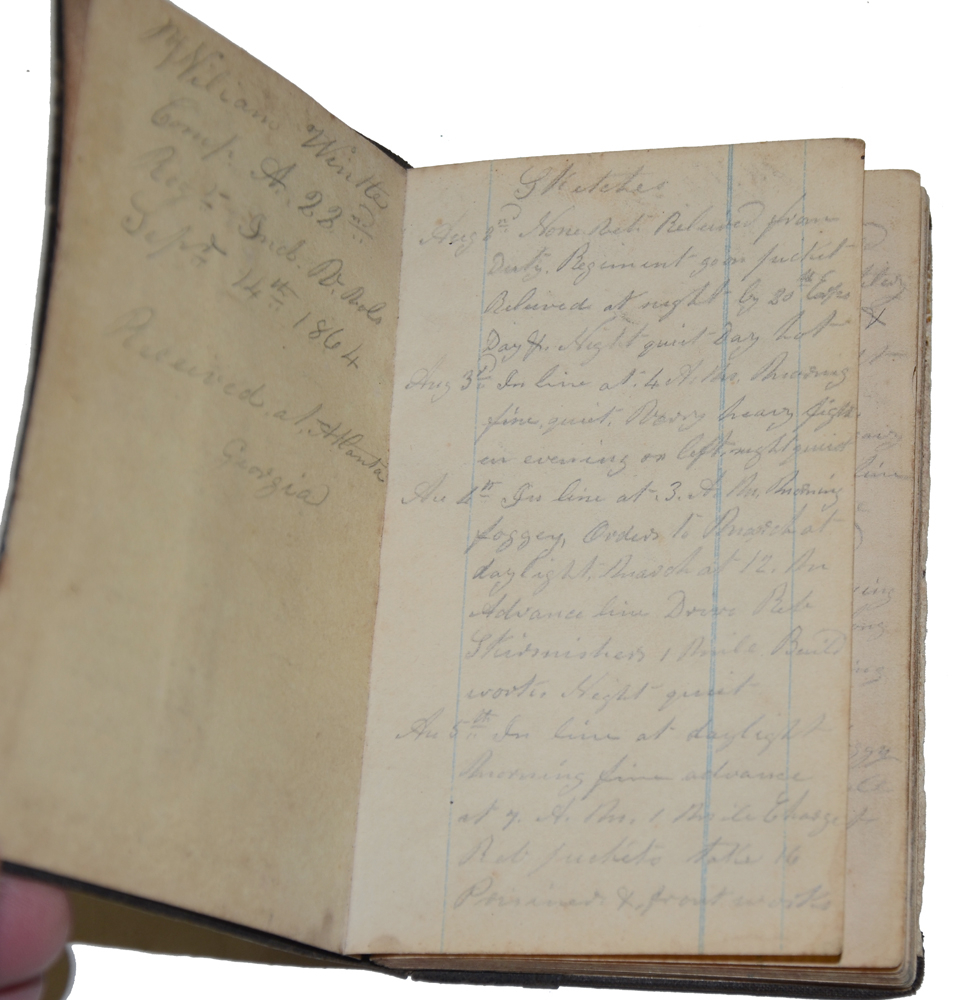 William Winter
Comp. A. 22nd
Regt Ind. V. Vols
Sept 14th 1864
Received at Atlanta
Georgia
Sketches
Aug 2nd Releived from
Duty. Regiment goin picket
Releived at night by 20th Corps
Day &. Night quiet Day hot
Aug 3d In line at 4 A. M. Morning
fine, quiet. Verry heavy fight
in evening on left, night quiet
Au 4th In line at 3. A. M. Morning
foggey, Orders to March at
daylight. March at 12. M
Advance line Drove Reb
Skirmishers 1 Mile. Build
works. Night quiet
Au 5th In line at daylight
Morning fine advance
at 7. A. M. 1. Mile Charge
Reb pickets take 16
Prisiners &. front works